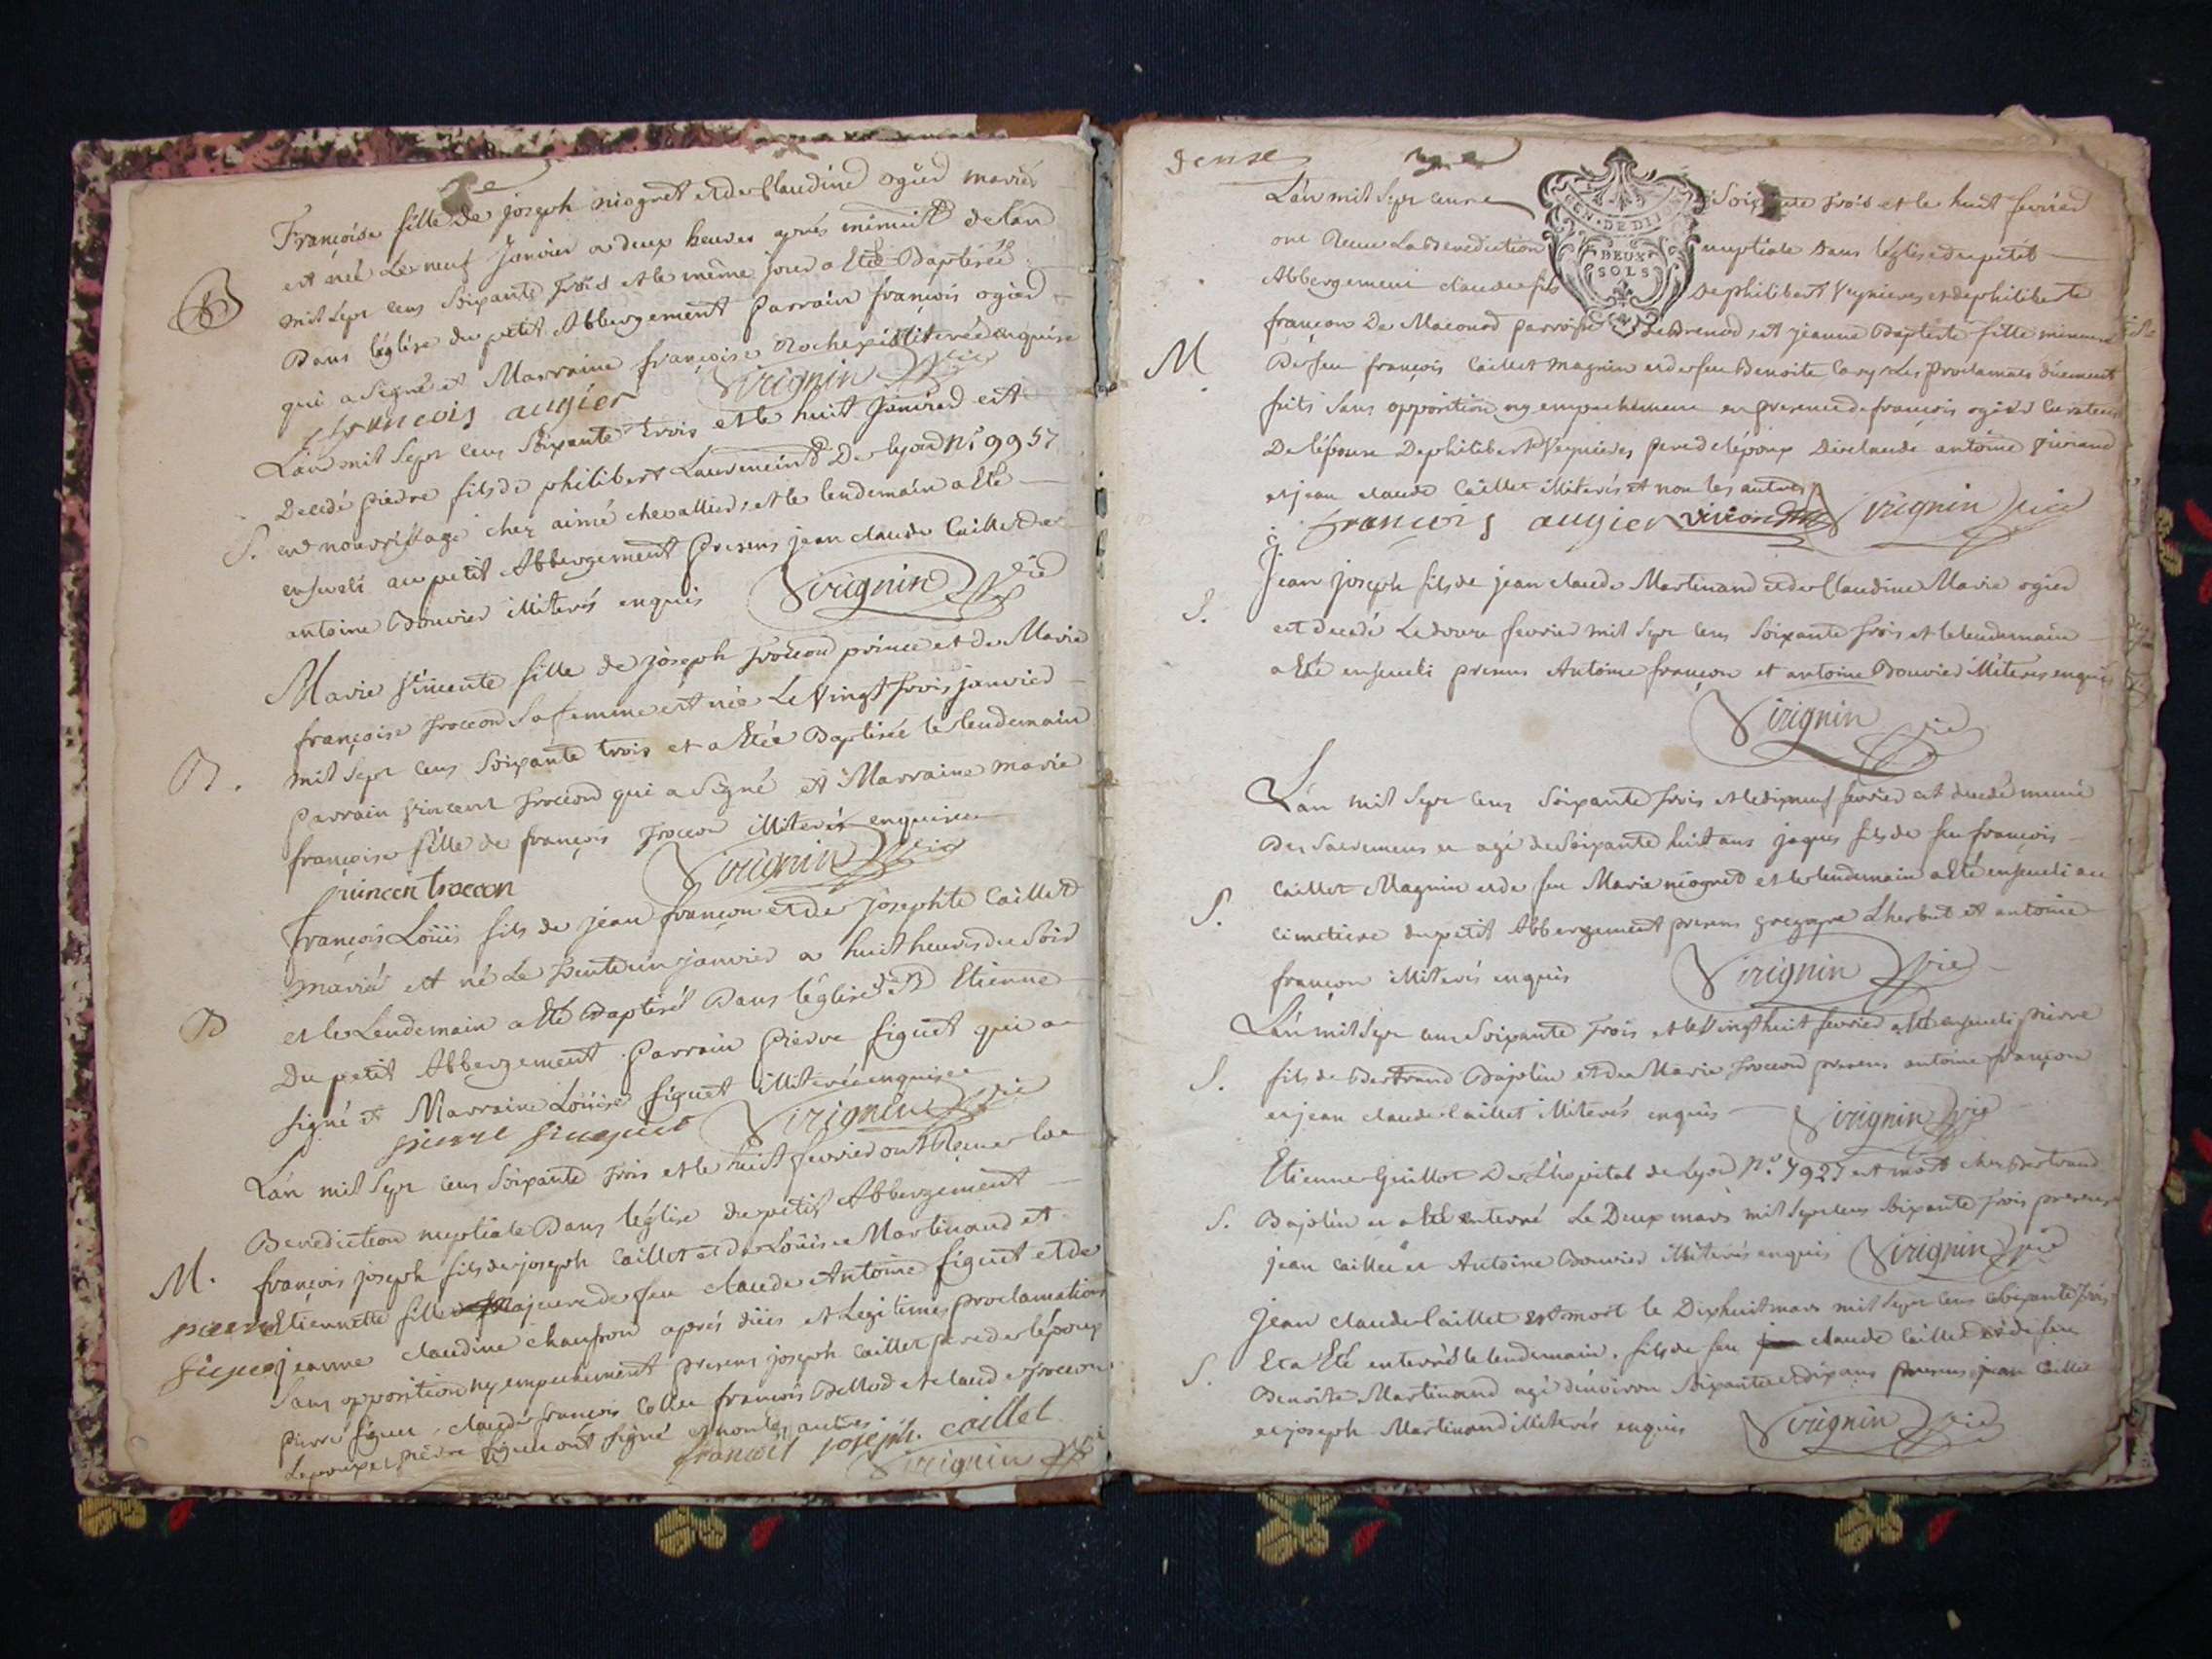 Françoise fille de joseph niogret et de Claudine ogier mariés
est née Le neuf Janvier a deux heures aprés minuit de lan
B
mil sept cens Soixante trois et le même jour a Eté Baptisée
Dans l'église du petit Abbergement Parrain françois ogier
qui a Signé et Marraine françoise illiterée enquise
francois augier Virignin Vic
L'an mil Sept cens Soixante trois et le huit Janvier est
Decedé pierre fils de philibert De lyon N° 9957
S. en nourrissage chez aimé chevallier, et le lendemain a Eté
enseveli au petit Abbergement Presens jean claude Caillet et
antoine Bouvier illiterés enquis Virignin Vic
Marie vincente fille de joseph troccon prince et de Marie
françoise troccon Sa femme est née Le vingt trois janvier
B. mil sept cens Soixante trois et a Etée Baptisée le lendemain
parrain vincent troccon qui a Signé et Marraine marie
françoise fille de françois troccon illiterée enquise
vincen troccon Virignin Vic
françois Loüis fils de jean françon et de josephte Caillet
mariés est né Le trente un janvier a huit heures du Soir
B et le Lendemain a Eté Baptisé Dans l'église de St Etienne
Du petit Abbergement Parrain pierre siguet qui a
signé et Marraine Loüise siguet illiterée enquise
pierre siuguet Virignin Vic
L'an mil sept cens Soixante trois et le huit fevrier ont Reçue la
Benediction nuptiale Dans l'église du petit Abbergement
M. françois joseph fils de joseph Caillet et de Loüise Martinand et
pierre Etiennette fille majeure de feu claude Antoine siguet et de
siuguet jeanne claudine chanfron aprés diies et Legitimes proclamations
Sans opposition ny empechement presens joseph Caillet pere de l'époux
pierre siguet, claude françois Collet françois Bellod et claude troccon
L'epoux et pierre siguet ont signé et non les autres
francois joseph caillet
Virignin Vic
L'an mil sept cens Soixante trois et le huit fevrier
GEN. DE DIJON
DEUX SOLS
ont Recue La Benediction nuptiale Dans l'église du petit
Abbergement claude fils De philibert Veynieres et de philiberte
françon De Maconod parroisse De Brenod, et jeanne Baptiste fille mineure
M De feu françois Caillet Magnin et de feu Benoite Les Proclamats düement
faits Sans opposition ny empechement en presence de françois ogier Curateur
De l'épouse De philibert Veynieres pere de l'époux De claude antoine
et jean claude Caillet illiterés et non les autres
francois augier Virignin Vic
Jean joseph fils de jean claude Martinand et de Claudine Marie ogier
S.
est decedé Le douze fevrier mil sept cens Soixante trois et le lendemain
a Eté enseveli presens Antoine françon et antoine Bouvier illiterés enquis
Virignin Vic
L'an mil sept cens Soixante trois et le dixneuf fevrier est decedé muni
Des Sacremens et agé de Soixante huit ans jaques fils de feu françois
Caillet Magnin et de feu Marie niogret et le lendemain a Eté enseveli au
S.
cimetiere du petit Abbergement presens gregoyre Lherbut et antoine
françon illiterés enquis Virignin Vic
L'an mil sept cens Soixante trois et le vingt huit fevrier a Eté enseveli pierre
S. fils de Bertrand Bajolin et de Marie troccon presens antoine françon
et jean claude Caillet illiterés enquis Virignin Vic
Etienne Guillot De L'hopital de Lyon N°. 7927 est mort chez Bertrand
S. Bajolin et a Eté enterré Le Deux mars mil sept cens Soixante trois presens
jean Caillet et Antoine Bouvier illiterés enquis Virignin Vic
Jean claude Caillet est mort le Dixhuit mars mil sept cens Soixante trois
S. Et a Eté enterré le lendemain. fils de feu claude Caillet et de feu
Benoite Martinand agé d'environ Soixante et dix ans presens jean Caillet
et joseph Martinand illiterés enquis Virignin Vic